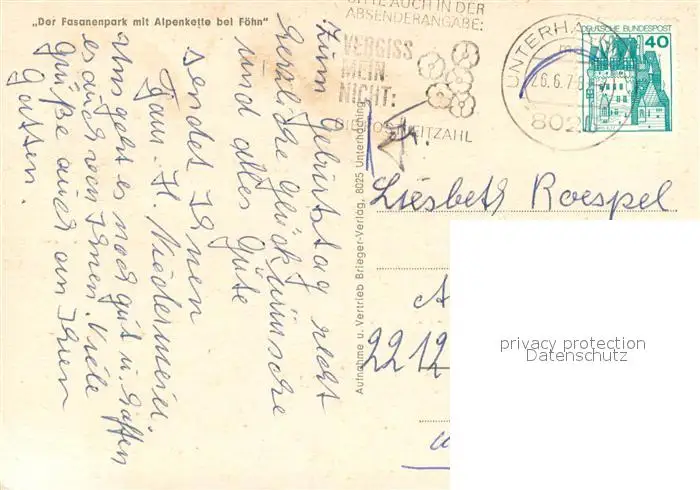 "Der Fasanenpark mit Alpenkette bei Föhn"
BITTE AUCH IN DER
ABSENDERANGABE:
VERGISS
MEIN
NICHT:
DIE POSTLEITZAHL
UNTERHA
26.6.7
802
DEUTSCHE BUNDESPOST
40
Zum Geburtstag recht
herzliche Glückwünsche
und alles Gute
sendet Ihnen
Fam. H. Niedermeier.
Uns geht es noch gut u. hoffen
es auch von Ihnen. Viele
Grüße auch an Ihren
Gatten.
Aufnahme u. Vertrieb Brieger-Verlag, 8025 Unterhaching
Fr.
Liesbeth Roespel
A
2212
privacy protection
Datenschutz